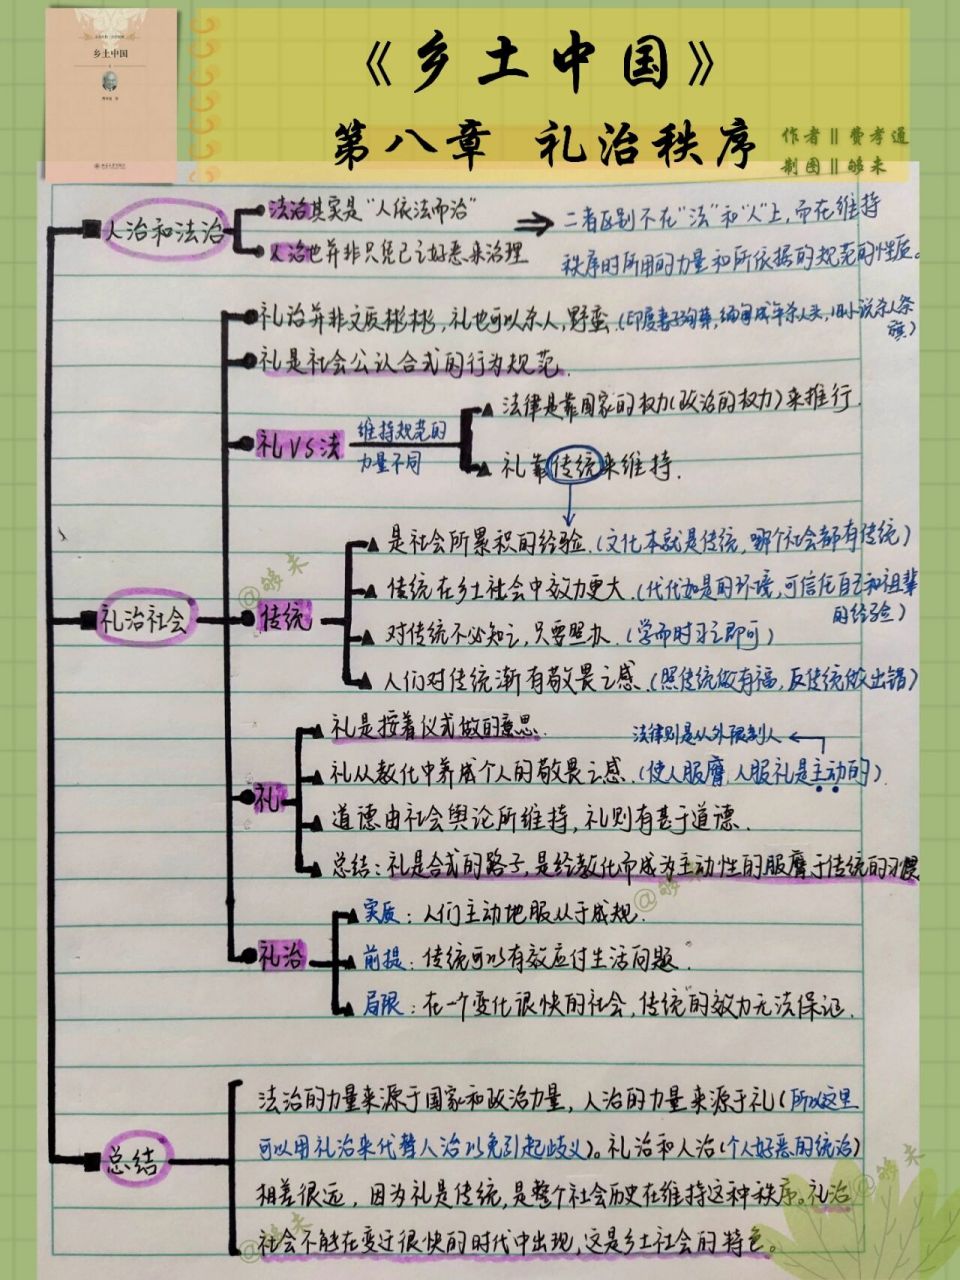 乡土中国
《乡土中国》
第八章 礼治秩序
作者||费孝通
制图||够未
法治其实是“人依法而治”
人治和法治
人治也并非只凭己之好恶来治理
二者区别不在“法”和“人”上,而在维持
秩序时所用的力量和所依据的规范的性质。
礼治并非文质彬彬,礼也可以杀人,野蛮(印度妻子殉葬,缅甸成年杀人头,旧小说杀人祭
旗)
礼是社会公认合式的行为规范.
法律是靠国家的权力(政治的权力)来推行.
礼VS法
维持规范的
力量不同
礼靠传统来维持.
是社会所累积的经验.(文化本就是传统,哪个社会都有传统)
@够未
传统在乡土社会中效力更大(代代如是的环境,可信任自己和祖辈
的经验)
礼治社会
传统
对传统不必知之,只要照办.(学而时习之即可)
人们对传统渐有敬畏之感.(照传统做有福,反传统做出错)
礼是按着仪式做的意思.
法律则是从外限制人
礼
礼从教化中养成个人的敬畏之感.(使人服膺,人服礼是主动的)
@够未
道德由社会舆论所维持,礼则有甚于道德.
总结:礼是合式的路子,是经教化而成为主动性的服膺于传统的习惯
@够未
实质:人们主动地服从于成规.
礼治
前提:传统可以有效应付生活问题.
局限:在一个变化很快的社会,传统“的效力无法保证.
法治的力量来源于国家和政治力量,人治的力量来源于礼(所以这里
总结
可以用礼治来代替人治以免引起歧义)。礼治和人治(个人好恶的统治)
相差很远,因为礼是传统,是整个社会历史在维持这种秩序。礼治
@够未
社会不能在变迁很快的时代中出现,这是乡土社会的特色。
@够未